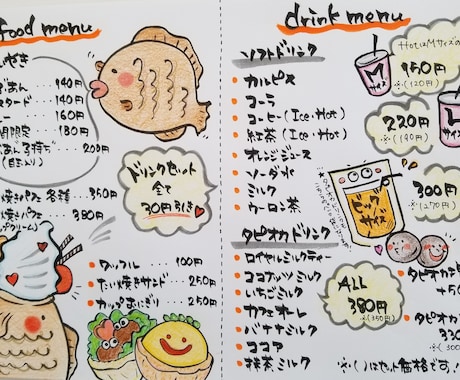 food menu
やき
あん ・・・ 140円
スタード ・・・ 140円
ー ・・・ 160円
間限定 ・・・ 180円
あん子持ち ・・・ 200円
(白玉入り)
ドリンクセット
全て
30円引き
焼きパフェ 各種 ・・・ 350円
焼きパフェ ・・・ 380円
プクリーム)
・ワッフル ・・・ 100円
・たい焼きサンド ・・・ 250円
・カップおにぎり ・・・ 250円
drink menu
ソフトドリンク
・カルピス
・コーラ
・コーヒー(Ice・Hot)
・紅茶(Ice・Hot)
・オレンジジュース
・ソーダ水
・ミルク
・ウーロン茶
HotはMサイズの
150円
※(120円)
M
サイズ
220円
※(190円)
サイズ
300円
※(270円)
ビッグ
サイズ
タピオカドリンク
・ロイヤルミルクティー
・ココナッツミルク
・いちごミルク
・カフェオレ
・バナナミルク
・ココア
・抹茶ミルク
ALL
380円
※(350円)
・タピオカ
+50
・タピオカ
330
※(300
※( )はセット価格です!